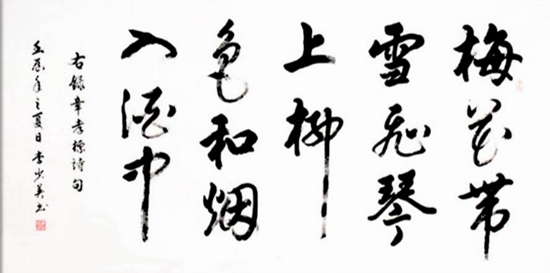 梅花帶
雪飛琴
上柳
色和烟
入酒中
右錄章孝標詩句
壬辰年之夏日 李少英书